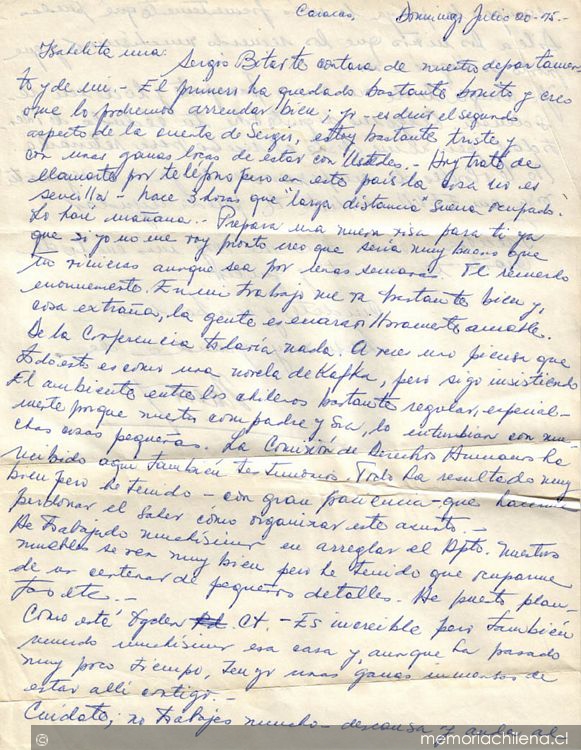 Caracas, Domingo Julio 20-75-
Isabelita mía:
Sergio Bitar te contara de nuestro departamen-
to y de mi.- El primero ha quedado bastante bonito y creo
que lo podremos arrendar bien; yo - es decir el segundo
aspecto de la cuenta de Sergio, estoy bastante triste y
con unas ganas locas de estar con Ustedes.- Hoy traté de
llamarte por teléfono pero en este país la cosa no es
sencilla - hace 3 horas que "larga distancia" suena ocupado.
Lo haré mañana.- Prepara una nueva visa para ti ya
que si yo no me voy pronto creo que sería muy bueno que
tu vinieras aunque sea por unas semanas. Te recuerdo
enormemente. En mi trabajo me va bastante bien y,
cosa extraña, la gente es maravillosamente amable.
De la Conferencia todavía nada. A veces uno piensa que
todo esto es como una novela de Kafka, pero sigo insistiendo
El ambiente entre los chilenos bastante regular, especial-
mente porque nuestro compadre y Sra, lo enturbian con mu-
chas cosas pequeñas. La Comisión de Derechos Humanos ha
recibido aquí también testimonios. Todo ha resultado muy
bien pero he tenido - con gran paciencia - que hacerme
perdonar el saber cómo organizar este asunto.-
He trabajado muchísimo en arreglar el Dpto. Nuestros
muebles se ven muy bien pero he tenido que ocuparme
de un centenar de pequeños detalles. He puesto plan-
tas etc.-
Como está Ogden Ct.- Es increíble pero también
recuerdo muchísimo esa casa y, aunque ha pasado
muy poco tiempo, tengo unas ganas inmensas de
estar allí contigo.-
Cuídate, no trabajes mucho - descansa y anda al
© memoriachilena.cl